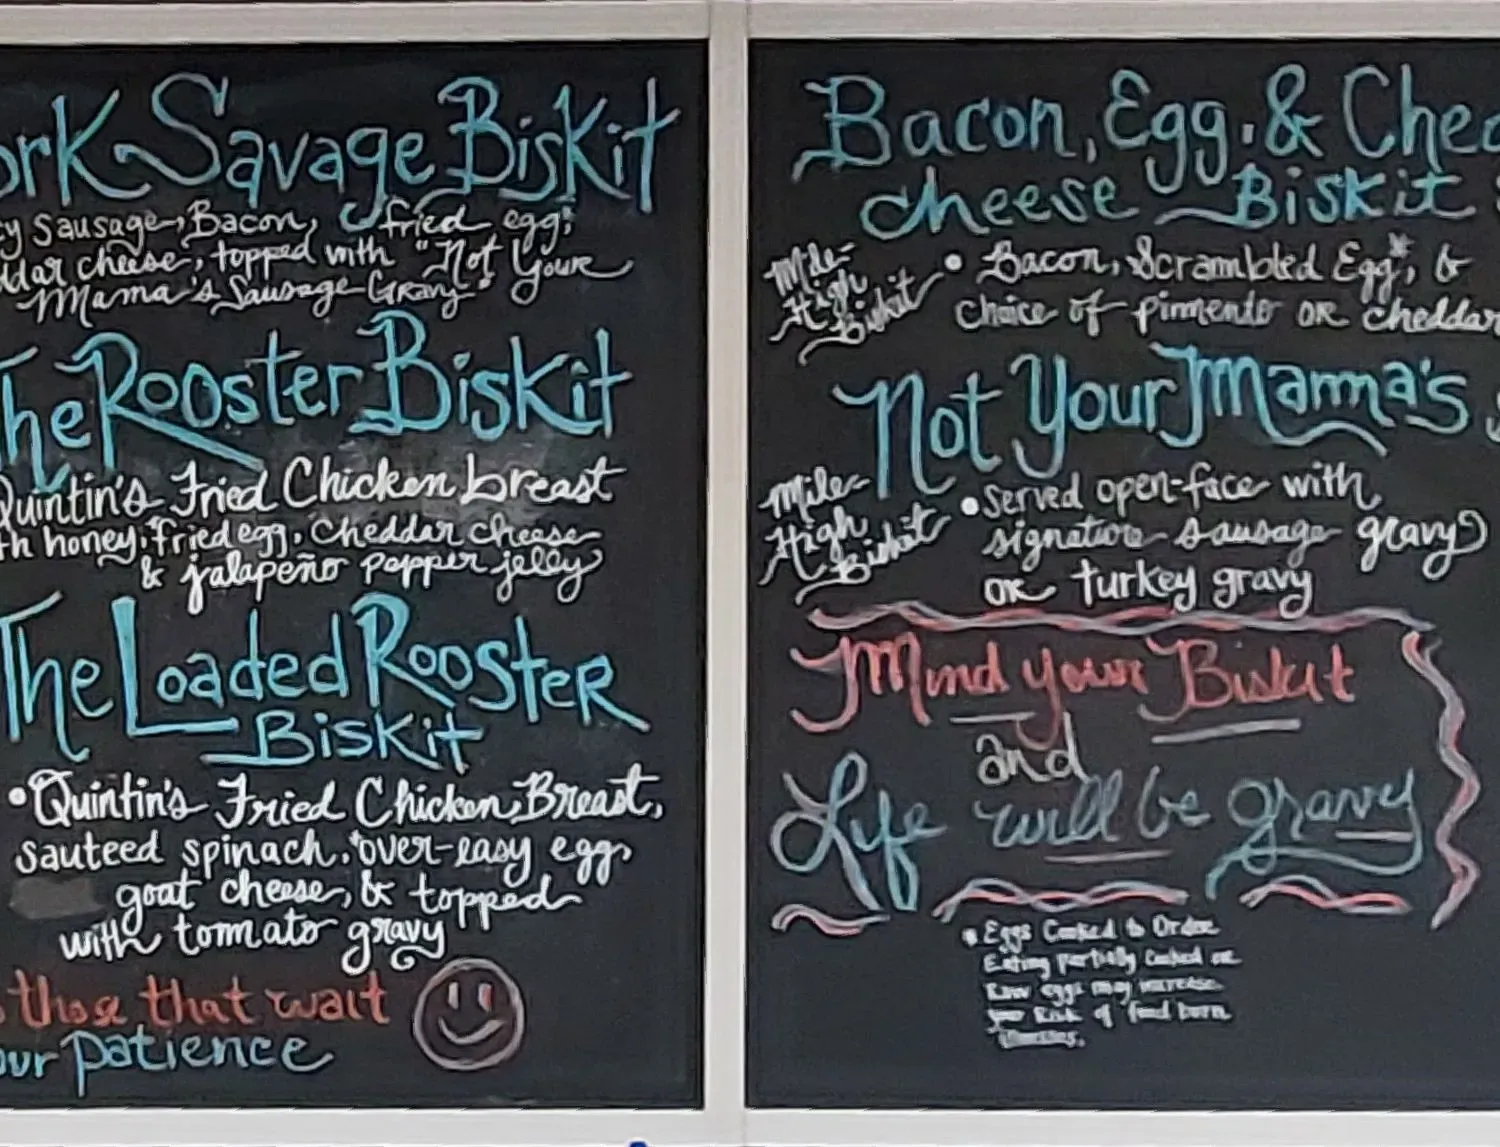 ork Savage Biskit
cy Sausage, Bacon, fried egg,
ddar cheese, topped with "Not Your
Mama's Sausage Gravy"
The Rooster Biskit
Quintin's Fried Chicken breast
th honey, *fried egg, cheddar cheese
& jalapeño pepper jelly
The Loaded Rooster
Biskit
•Quintin's Fried Chicken Breast,
sauteed spinach, *over-easy egg,
goat cheese, & topped
with tomato gravy
those that wait
our patience
Bacon, Egg, & Ched
cheese Biskit
Mile-
High
Biskit
• Bacon, Scrambled Egg*, &
choice of pimento or cheddar
Not Your Mama's
Mile-
High
Biskit
•Served open-face with
signature sausage gravy
or turkey gravy
Mind your Biskit
and
Life will be gravy
* Eggs Cooked to Order
Eating partially Cooked or
Raw eggs may increase
your Risk of food born
illnesses.